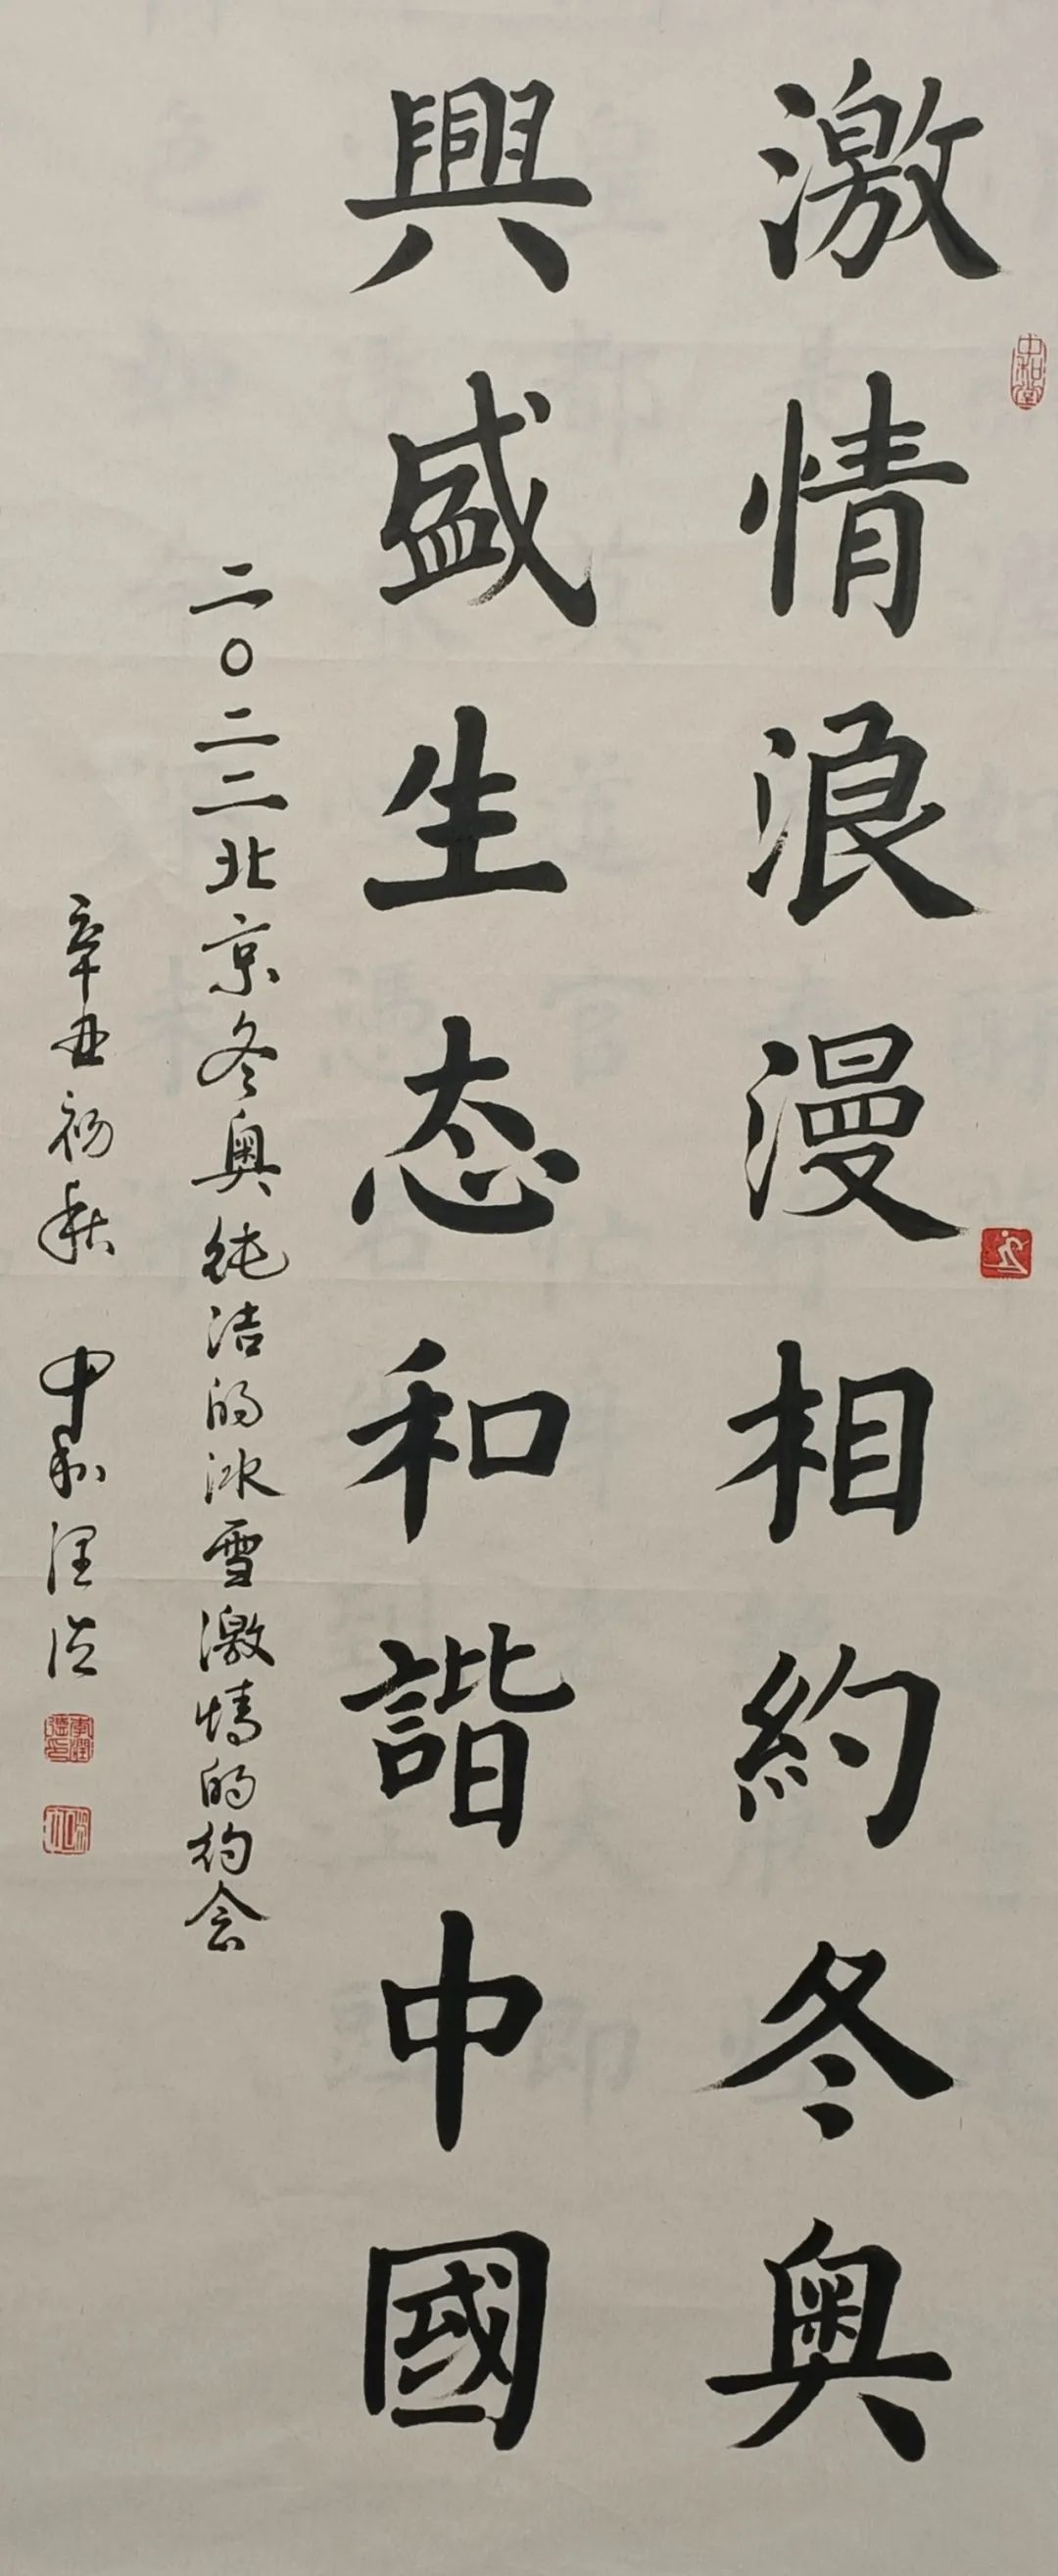 激情浪漫相約冬奥
興盛生态和諧中國
二〇二二北京冬奥纯洁的冰雪激情的约会
辛丑初秋 中和 润德
中和堂
李润德印